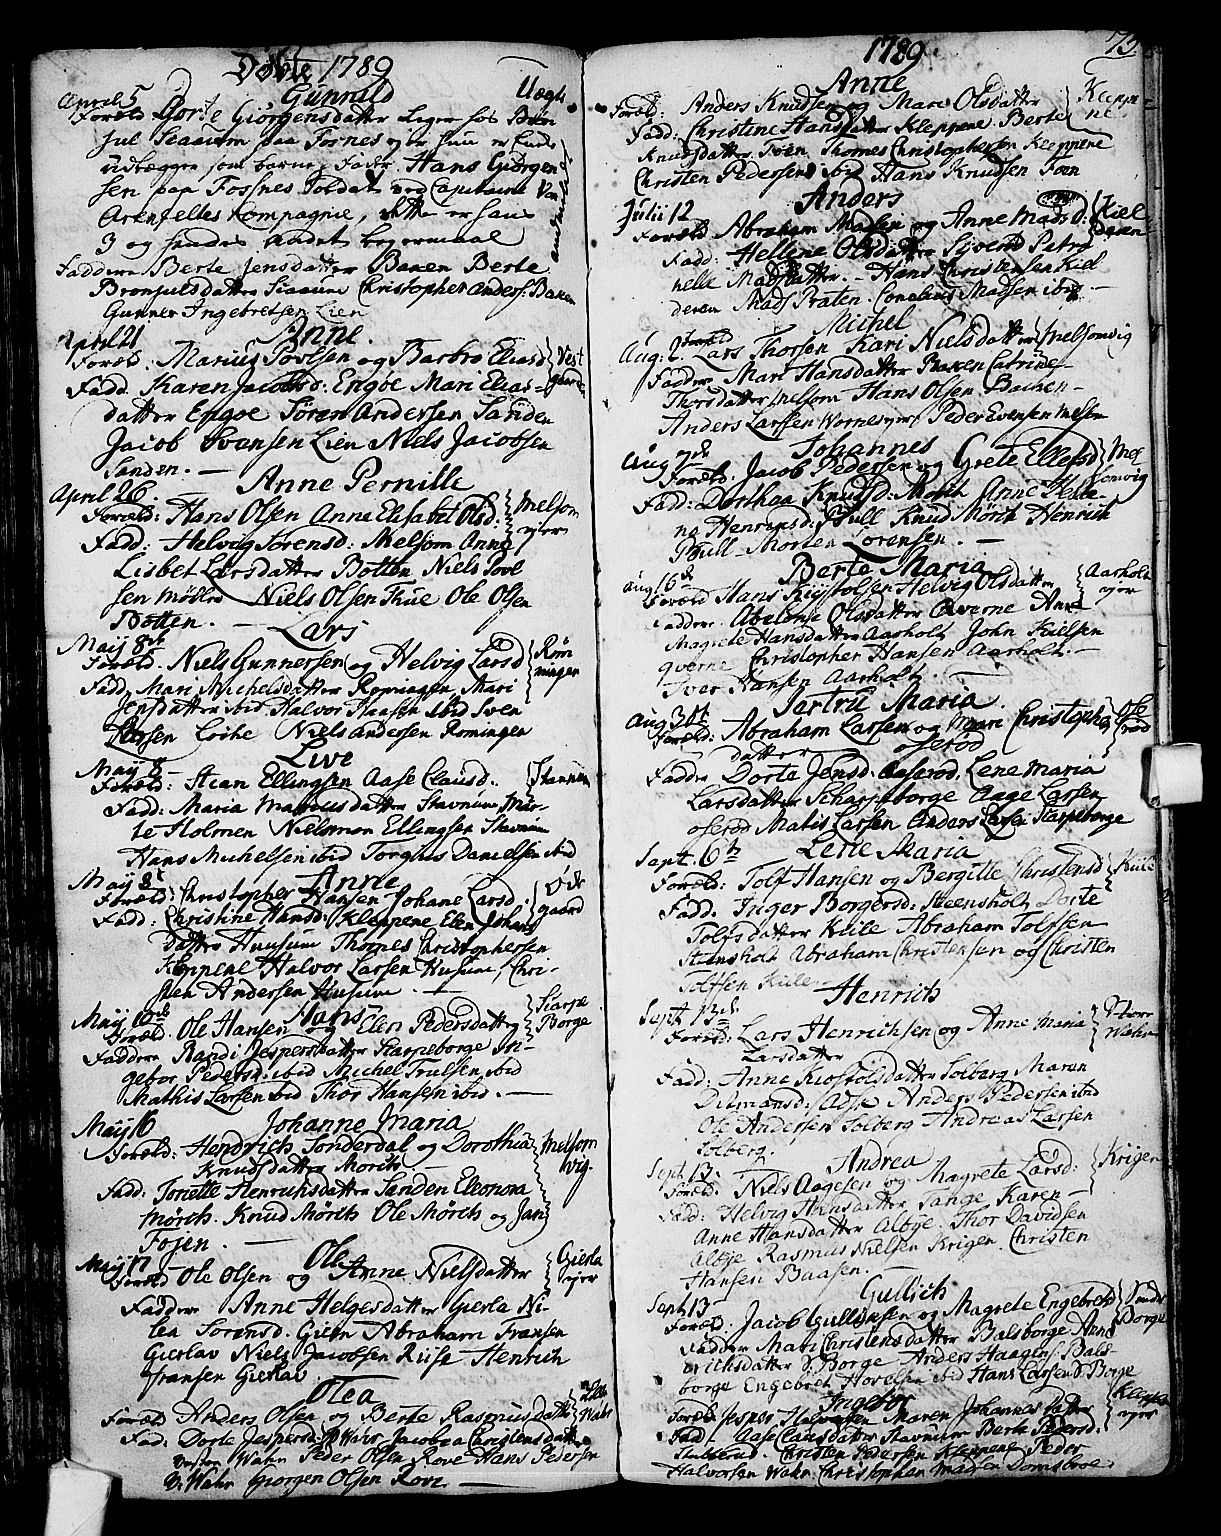 Døbte 1789
Gunnild Uægte
April 5
Foræld Dorte Giörgensdatter
paa Fosnes og er hun
udlægger som barne Fader Hans Giörgen
sen paa Fosnes Soldat ved Capitaine Von
Arenfeltes Compagnie, dette er hans
3 og hendes Andet
Faddere Berte Jensdatter Baxen Berte
Bronjulsdatter Christopher Anders: Baxen
Gunner Ingebretsen Lien
April 21 Anne
Foræld: Marius Povelsen og Barbro Eliasd
Fadd Karen Jacobsd: Engöe Mari Elias-
datter Engöe Sören Andersen Sanden
Jacob Svensen Lien Niels Jacobsen
Sanden.
Anne Pernille
April 26.
Foræld: Hans Olsen Anne Elisabet Olsd: Melsom
eyer
Fadd: Helvig Sörensd: Melsom Anne
Lisbet Larsdatter Botten Niels Povel
sen Möllre Niels Olsen Thue Ole Olsen
Botten.
Lars
Maij 8de
Foræld. Niels Gunnersen og Helvig Larsd Röm
mingen
Fadd Mari Michelsdatter Romingen Mari
Jensdatter ibid Halvor Haasen ibid Sven
Larsen Niels Andersen Romingen
Live
Maij 8
Foræld: Stian Ellingsen Aase Clausd.
Fadd: Maria Marcusdatter Stavnum Mar-
te Holmen Nielsmon Ellingsen Stavnum
Hans Michelsen ibid Torgius Danielsen ibid
Maij 8t Anne
Foræld: Christopher Hansen Johane Larsd. Öde
gaard
Fadd: Christine Hansd: Kleppene Elen Johans
datter Huusum Thomes Christophersen
Kleppene Halvor Larsen Husum, Chri-
sten Andersen Husum.
Maij 10de Hans
Foræld: Ole Hansen og Elen Pedersdatter Skarpe
Borge
Faddere Randi Jespersdatter Skarpeborge In-
gebor Pedersd: ibid Michel Truelsen ibid
Mathis Larsen ibid Thor Hansen ibid.
Maij 16 Johanne Maria
Foræld: Hendrich Sonderdal og Dorothea Melsom
vig.
Knudsdatter Mörch
Fadd: Toriette Henrichsdatter Sanden Eleonora
Mörch. Knud Mörch Ole Mörch og Jan
Fojen.
Ole
Maij 17
Foræld Ole Olsen og Anne Nielsdatter Gierla
eyer
Faddere Anne Helgesdatter Gierla Ni-
lea Sörensd. Gierla Abraham Fransen
Gierlav Niels Jacobsen Ruse Henrich
Fransen Gierlav
Otea
Foræld Anders Olsen og Berte Rasmusdatter
Wahr
Fad: Dorte Jespersd: Wahr Jacobea Christensdatter
Wahr Peder Olsen Rove Hans Pedersen
V: Wahr Giorgen Olsen Rove.
1789 75.
Anne
Foræld: Anders Knudsen og Mari Olsdatter Kleppe
ne
Fadd: Christine Hansdatter Kleppene Berte
Knudsdatter Foen Thomes Christophersen Kleppene
Christen Pedersen ibid Hans Knudsen Foen
Anders
Julii 12
Foræld: Abraham Madsen og Anne Madsd: Kiel
deren
Fadd: Hellene Olsdatter Petro
nelle Madsdatter. Hans Christensen Kiel
deren Mads Praten. Cornelius Madsen ibid
Michel
Aug: 2. Foræld Lars Thorsen Kari Nielsdatter Melsomvig
Faddere Mari Hansdatter Baxen Catrine
Thorsdatter Melsom Hans Olsen Bachen-
Anders Larssen Peder Evensen Melsom
Johannes
Aug 9de
Foræld. Jacob Pedersen og Grete Ellefsd Mel
somvig
Fadd: Dorthea Knudsd: Mörch Anne Hele-
na Henrensd: Knud Mörch Henrich
Morten Lorensen.
Berte Maria
Aug 16de
Foræld Hans Kiostolsen Helvig Olsdatter Aarholt
eyer
Faddere Abelonse Olsdatter Qverne Anne
Magrete Hansdatter Aarholt John Kielsen
Qverne Christopher Hansen Aarholt.
Iver Hansen Aarholt.
Jertru Maria
Aug 30te
Foræld: Abraham Larssen og Mari Christophers Ose
röd
datter Oseröd
Faddere Dorte Jensd: Aaseröd. Lene Maria
Larsdatter Scharpeborge Aage Larsen
Oseröd Matis Larsen Anders Larsen Skarpeborge
Sept. 6te Lene Maria
Foræld: Tolf Hansen og Bergitte Christensd Kiile
Fadd. Inger Borgersd: Steensholt Dorte
Tolfsdatter Kiile Abraham Tolfsen
Stensholt Abraham Christensen og Christen
Tolfsen Kiile
Henrich
Sept 13de
Foræld: Lars Henrichsen og Anne Maria
Wahr
Larsdatter
Fadd: Anne Kiostolsdatter Solberg Maren
Ditmansd: Anders Pedersen ibid
Ole Andersen Solberg Andreas Larsen
Solberg.
Sept 13. Andrea
Foræld: Niels Aagesen og Magrete Larsd: Krigen
Fadd: Helvig Hansdatter Tange Karen
Anne Hansdatter Albye. Thor Davidsen
Albye Rasmus Nielsen Krigen. Christen
Hansen Baasen.
Gullich
Sept 13
Foræld: Jacob Gullichsen og Magrete Engebretsd Sonder
Borge
Faddere Mari Christensdatter Balsborge Anne
richsdatter S: Borge Anders Haagens Bals
borge Engebret Hovelsen ibid Hans Larsen S: Borge
Ingebor
Foræld Jesper Halvorsen Maren Johannesdatter Kleppe
eyer
Fad: Aase Clausdatter Stavnum Berte Pedersd:
Christen Pedersen Kleppene Peder
Halvorsen Wahr Christopher Madsen Domsbroe.